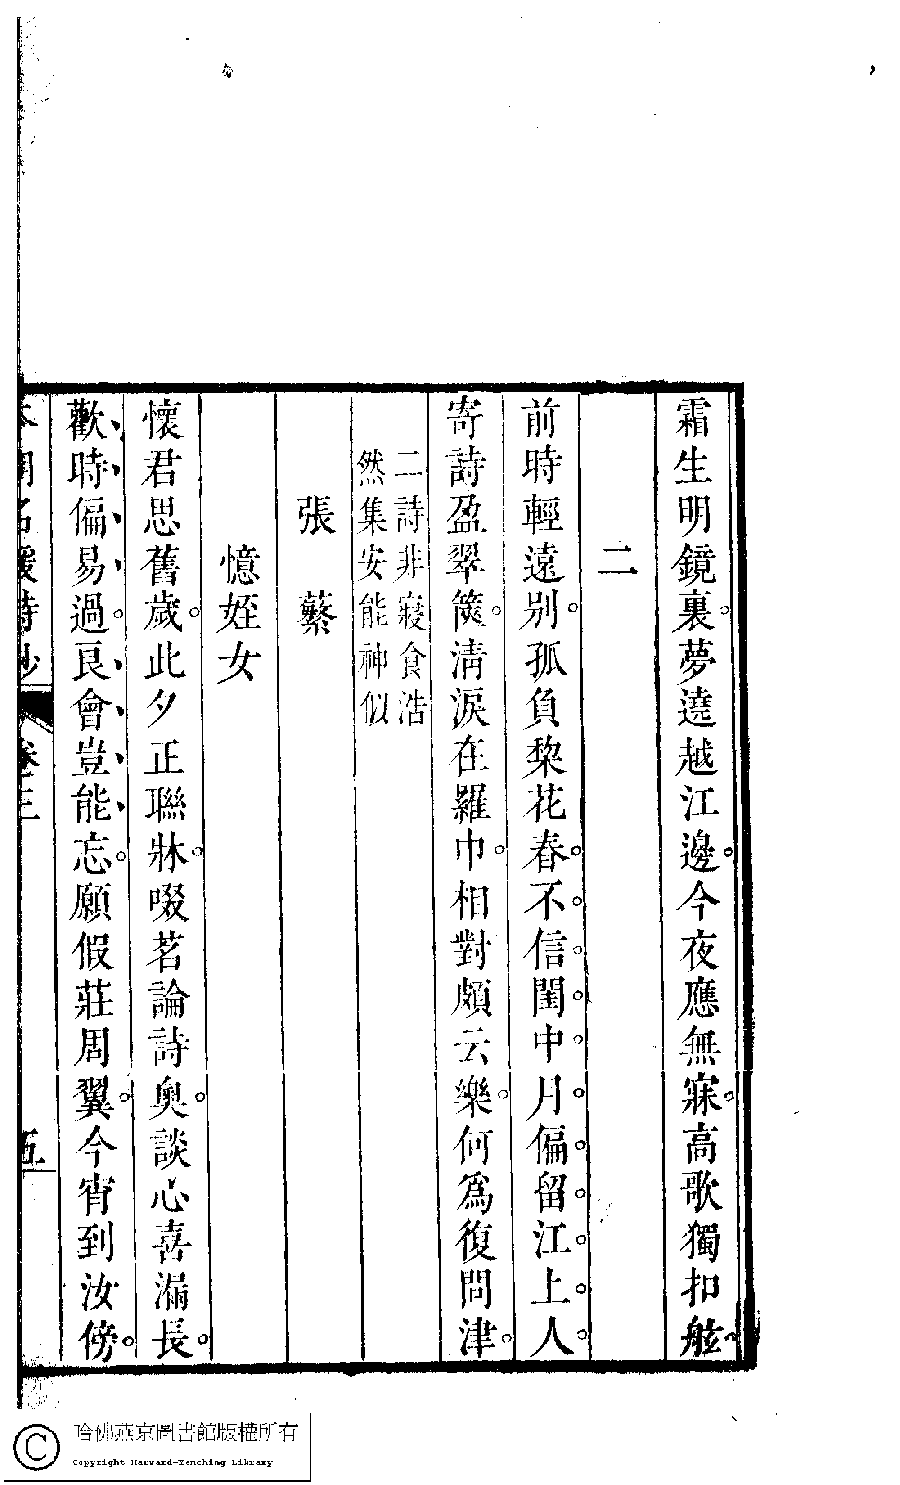 霜生明鏡裏。夢遶越江邊。今夜應無寐。高歌獨扣舷。
二
前時輕遠別。孤負棃花春。不信閨中月。偏留江上人。
寄詩盈翠篋。淸淚在羅巾。相對頗云樂。何爲復問津。
二詩非寢食浩
然集安能神似
張蘩
憶姪女
懷君思舊歲。此夕正聯牀。啜茗論詩奧。談心喜漏長。
歡時偏易過。良會豈能忘。願假莊周翼。今宵到汝傍。
本朝名媛詩鈔 卷三 五
哈佛燕京圖書館版權所有
Copyright Harvard-Yenching Library